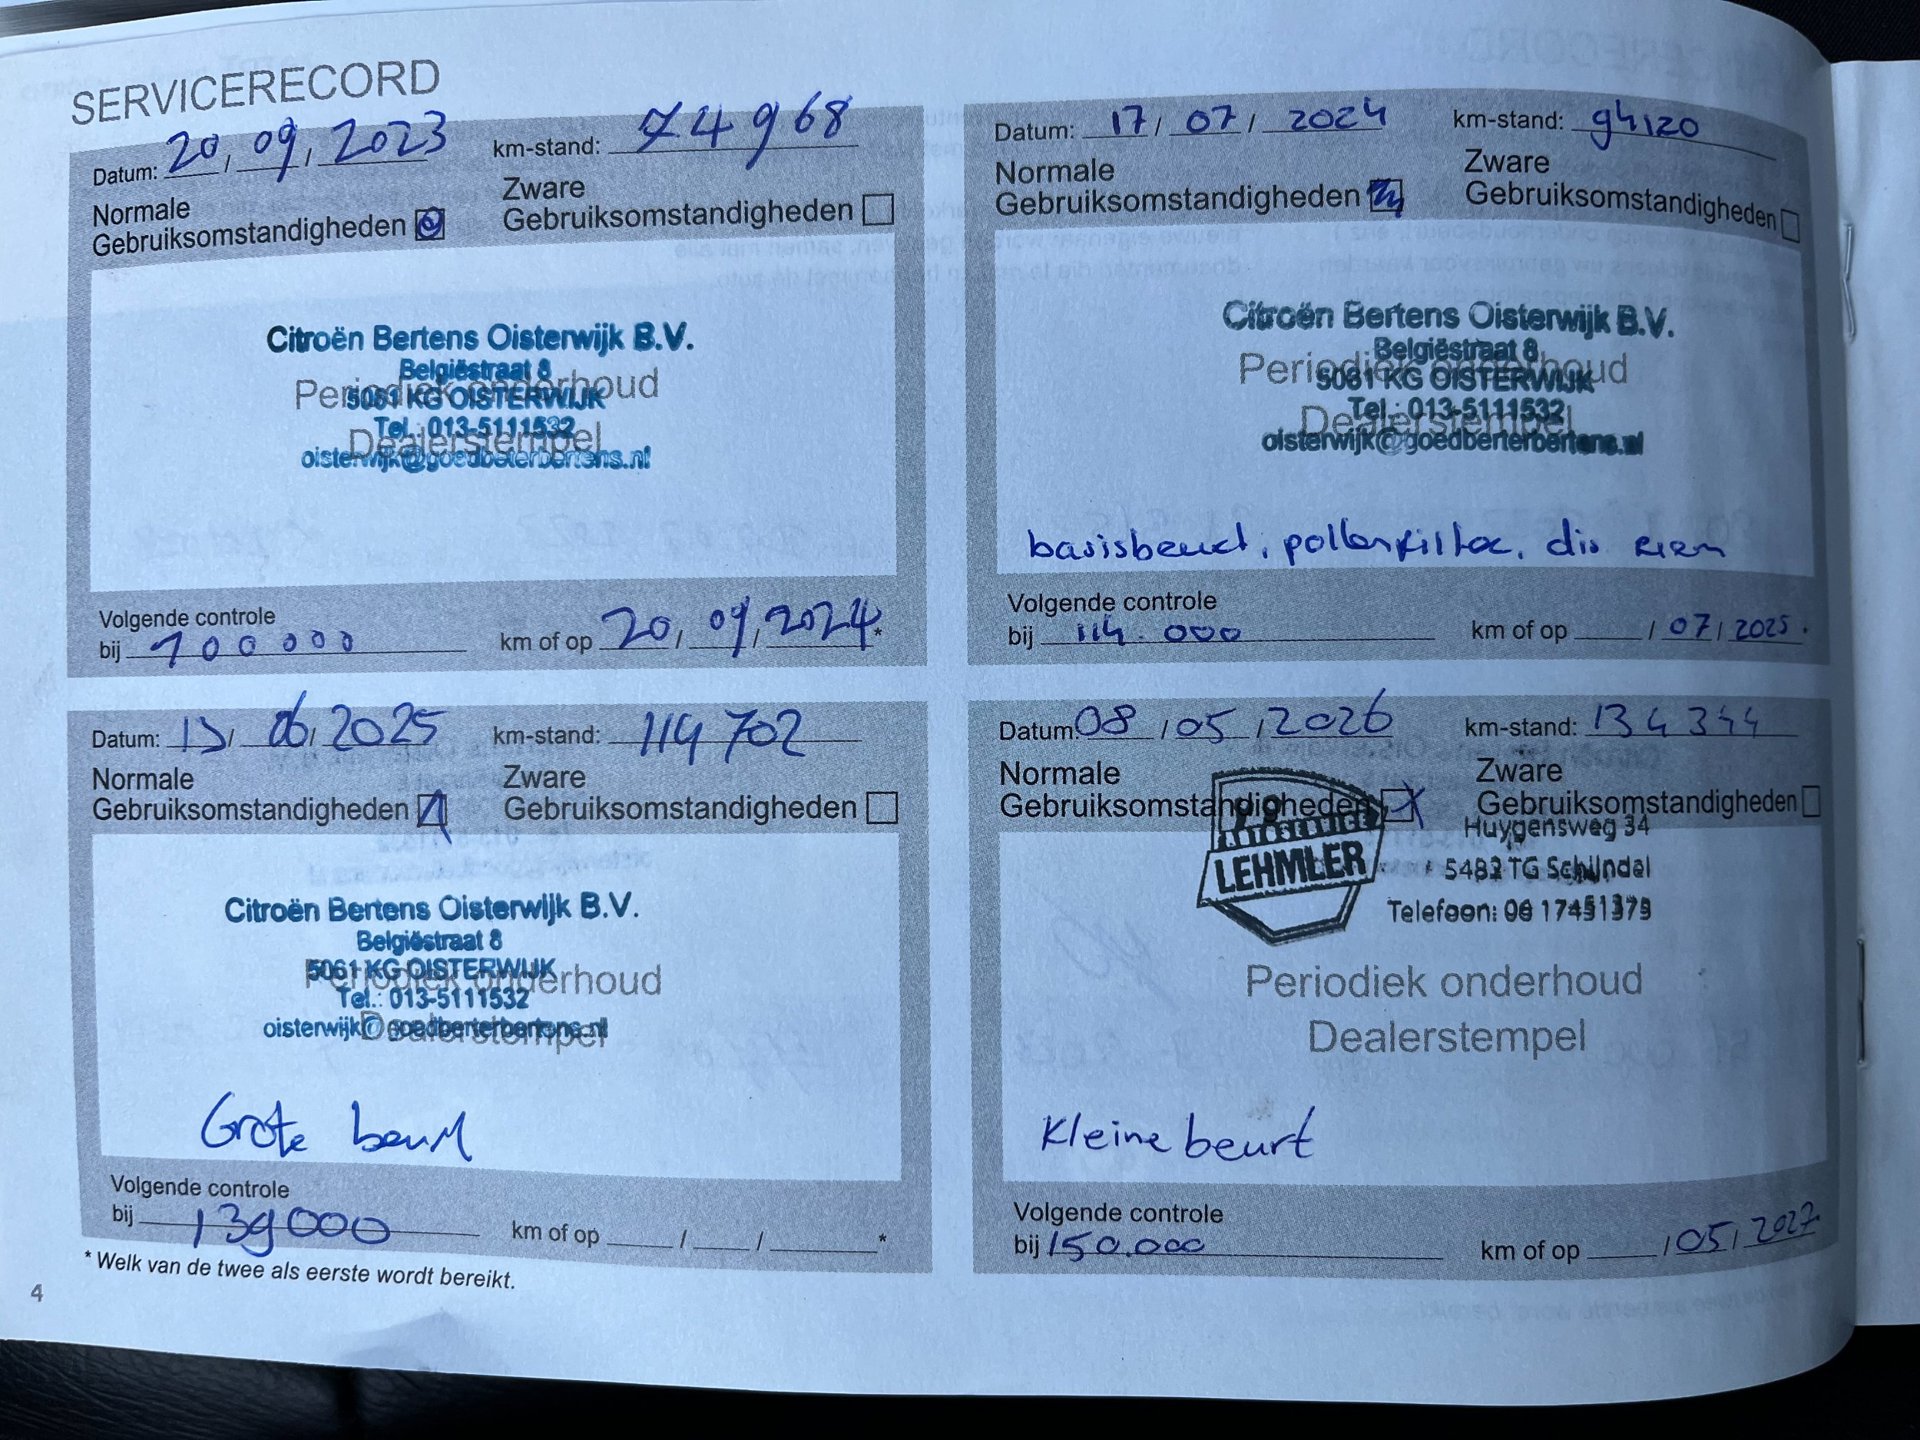 SERVICERECORD
Datum: 20 / 09 / 2023 km-stand: 74968
Normale
Gebruiksomstandigheden
Zware
Gebruiksomstandigheden
Citroën Bertens Oisterwijk B.V.
Belgiëstraat 8
Periodiek onderhoud
5061 KG OISTERWIJK
Tel.: 013-5111532
Dealerstempel
oisterwijk@goedbeterbertens.nl
Volgende controle
bij 100000 km of op 20 / 09 / 2024 *
Datum: 17 / 07 / 2024 km-stand: 94120
Normale
Gebruiksomstandigheden
Zware
Gebruiksomstandigheden
Citroën Bertens Oisterwijk B.V.
Belgiëstraat 8
Periodiek onderhoud
5061 KG OISTERWIJK
Tel.: 013-5111532
Dealerstempel
oisterwijk@goedberterbertens.nl
basisbeurt, pollenfilter, dis riem
Volgende controle
bij 114.000 km of op / 07 / 2025 .
Datum: / 06 / 2025 km-stand: 114702
Normale
Gebruiksomstandigheden
Zware
Gebruiksomstandigheden
Citroën Bertens Oisterwijk B.V.
Belgiëstraat 8
5061 KG OISTERWIJK
Periodiek onderhoud
Tel.: 013-5111532
oisterwijk@goedberterbertens.nl
Dealerstempel
Grote beurt
Volgende controle
bij 139000 km of op / / *
Datum: 08 / 05 / 2026 km-stand: 134344
Normale
Gebruiksomstandigheden
Zware
Gebruiksomstandigheden
AUTOSERVICE
LEHMLER
Huygensweg 34
5482 TG Schijndel
Telefoon: 06 17451379
Periodiek onderhoud
Dealerstempel
Kleine beurt
Volgende controle
bij 150.000 km of op / 05 / 2027
* Welk van de twee als eerste wordt bereikt.
4